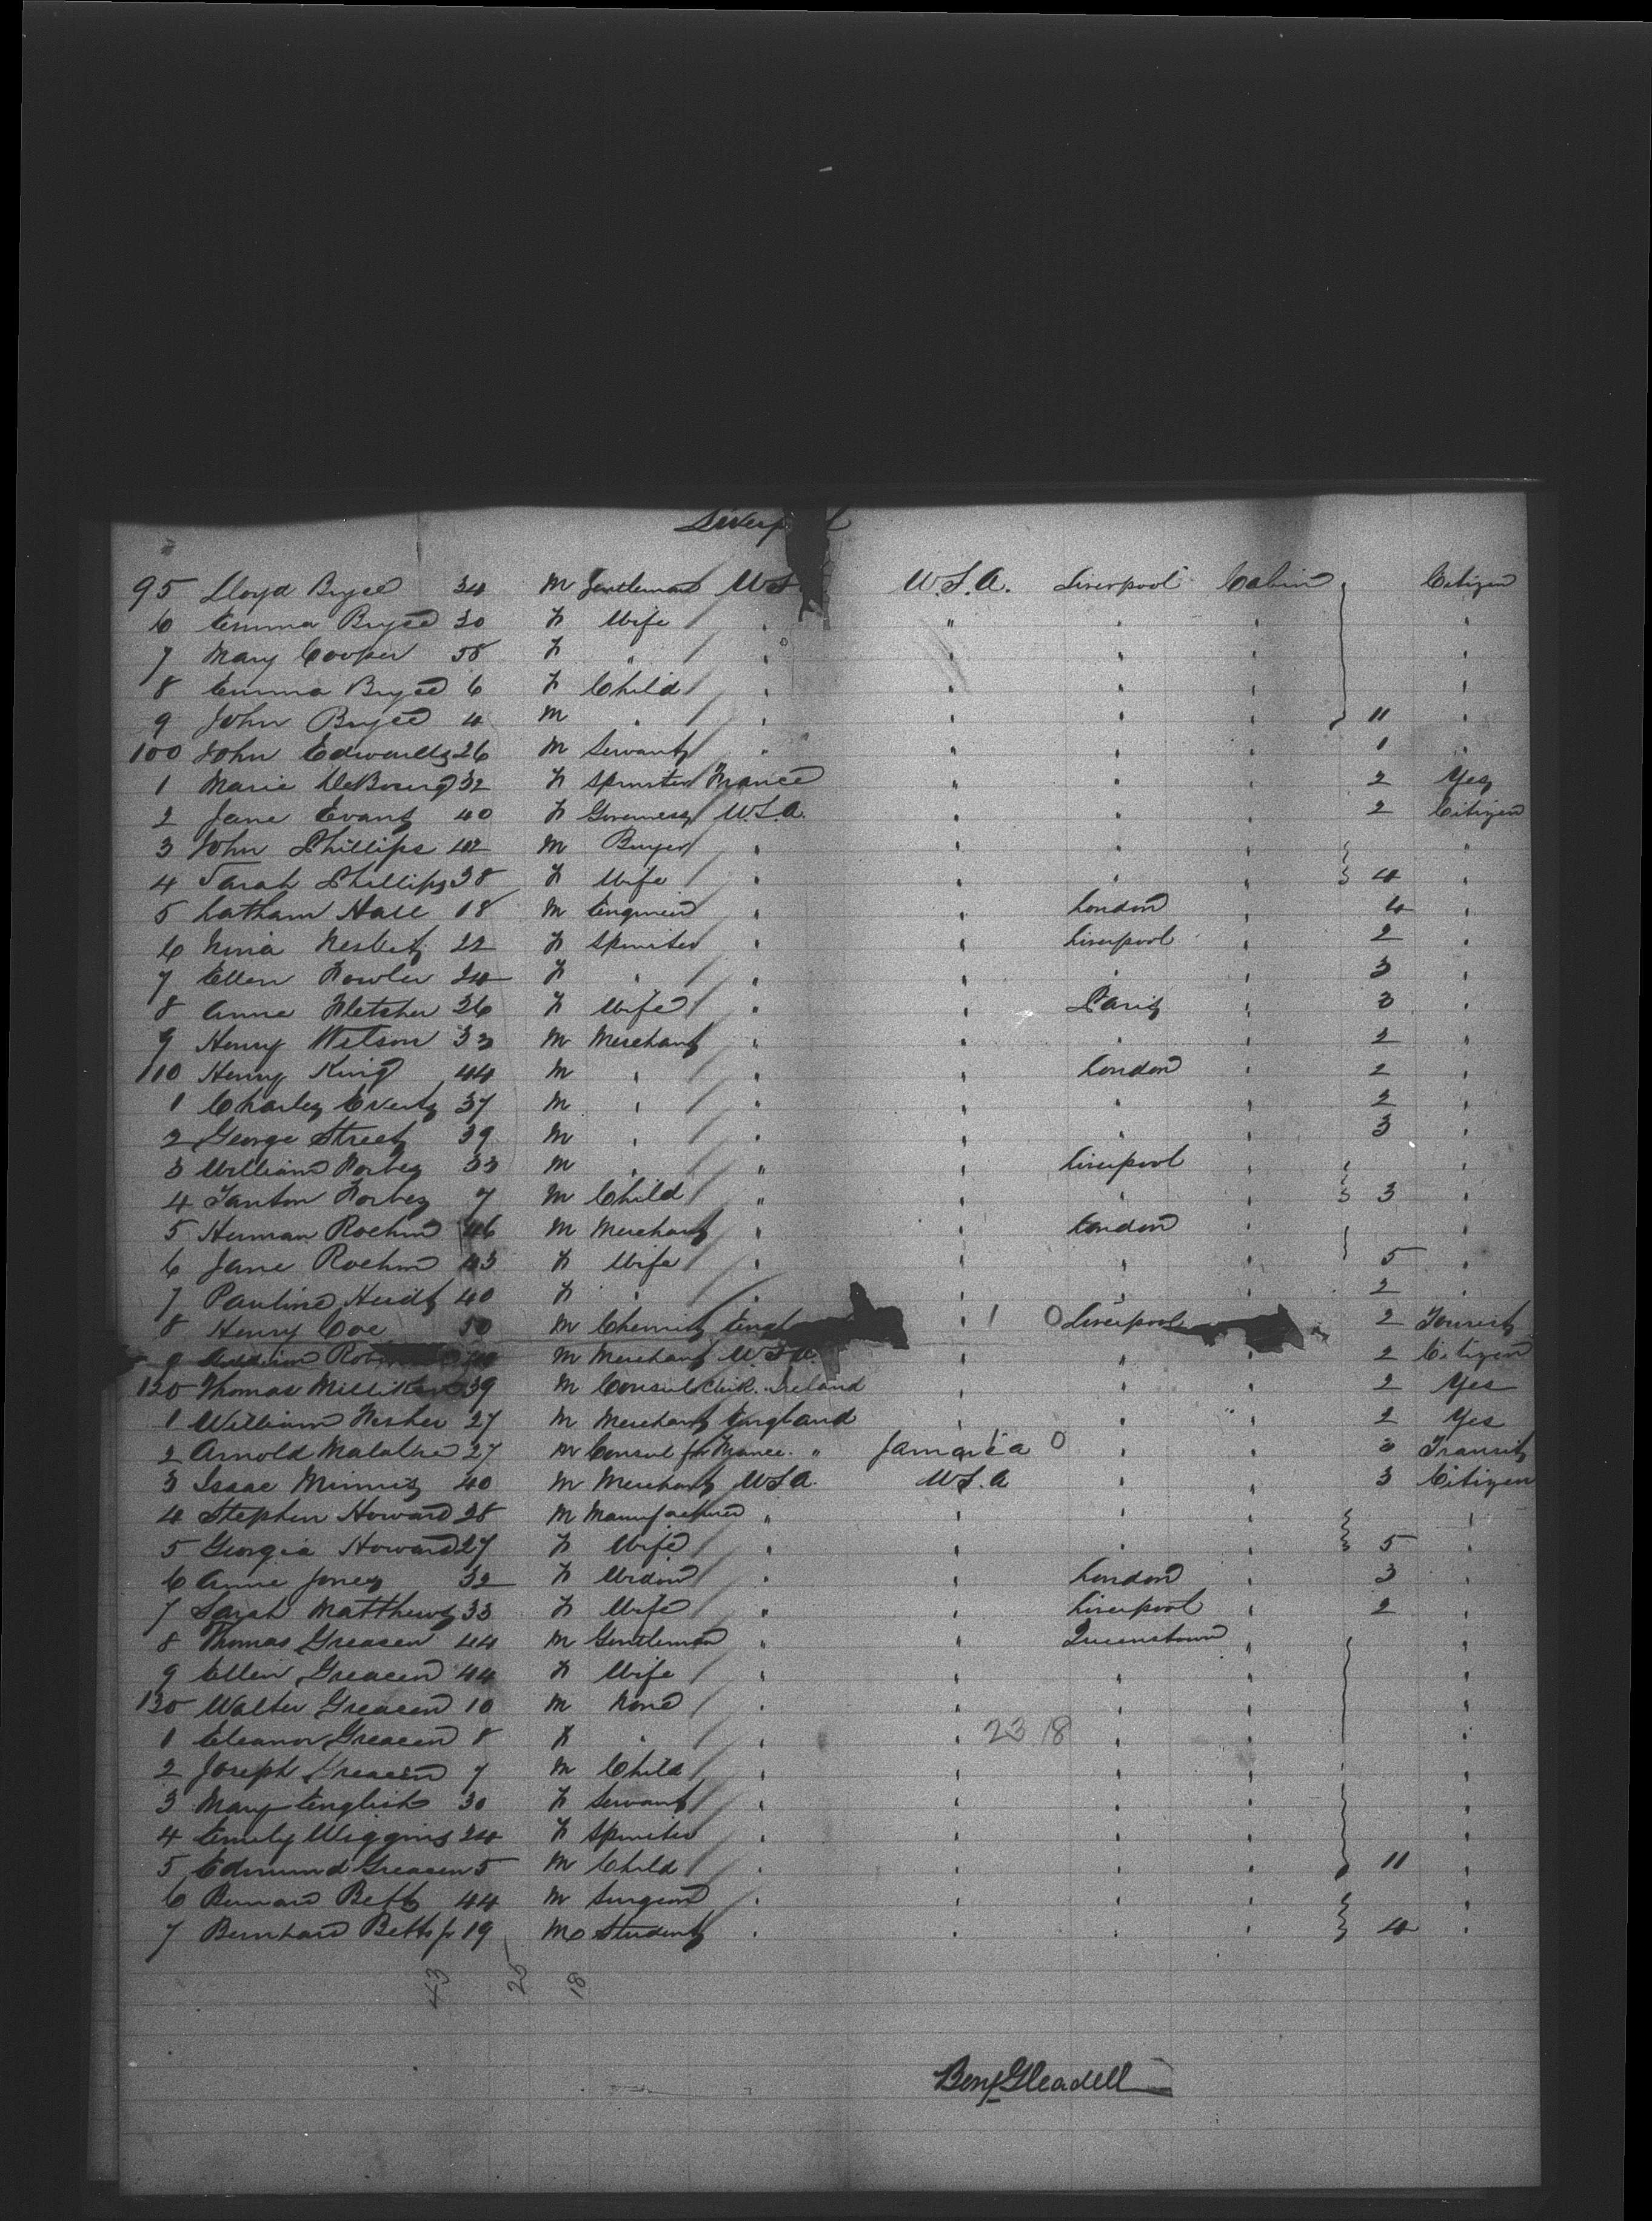 Liverpool
95 Lloyd Bryce 34 M Gentleman U.S U.S.A. Liverpool Cabin Citizen
6 Emma Bryce 30 F Wife " " " " "
7 Mary Cooper 58 F " " " " " "
8 Emma Bryce 6 F Child " " " " "
9 John Bryce 4 M " " " " " 11 "
100 John Edwards 26 M Servant " " " " 1 "
1 Marie DeBourg 32 F Spinster France " " " 2 Yes
2 Jane Evans 40 F Governess U.S.A. " " " 2 Citizen
3 John Phillips 42 M Buyer " " " " "
4 Sarah Phillips 38 F Wife " " " " 4 "
5 Latham Hall 18 M Engineer " " London " 4 "
6 Nina Nesbit 22 F Spinster " " Liverpool " 2 "
7 Ellen Fowler 24 F " " " " " 3 "
8 Anne Fletcher 26 F Wife " " Paris " 3 "
9 Henry Wilson 33 M Merchant " " " " 2 "
110 Henry King 44 M " " " London " 2 "
1 Charles Everts 37 M " " " " " 2 "
2 George Street 39 M " " " " " 3 "
3 William Forbes 33 M " " " Liverpool " "
4 Forbes 7 M Child " " " " 3 "
5 Herman Roehm 46 M Merchant " " London " "
6 Jane Roehm 43 F Wife " " " " 5 "
7 Pauline 40 F " " " " " 2 "
8 Henry Coe 50 M Chemist Engl " 1 0 Liverpool 2 Tourist
9 Rob M Merchant U.S.A. " " " 2 Citizen
120 Thomas Milliken 39 M Consul Clerk. Ireland " " " 2 Yes
1 William Fisher 27 M Merchant England " " " 2 Yes
2 Arnold 27 M Consul for France. " Jamaica 0 " " 3 Transit
3 Isaac Minnis 40 M Merchant U.S.A. U.S.A " " 3 Citizen
4 Stephen Howard 28 M Manufacturer " " " " "
5 Georgia Howard 27 F Wife " " " " 5 "
6 Anne Jones 32 F Widow " " London " 3 "
7 Sarah Matthews 33 F Wife " " Liverpool " 2 "
8 Thomas Greacen 44 M Gentleman " " Queenstown " "
9 Ellen Greacen 44 F Wife " " " " "
130 Walter Greacen 10 M None " " " " "
1 Eleanor Greacen 8 F " " " 23 18 " " "
2 Joseph Greacen 7 M Child " " " " "
3 Mary English 30 F Servant " " " " "
4 Emily Wiggins 24 F Spinster " " " " "
5 Edmund Greacen 5 M Child " " " " 11 "
6 Bernard Bett 44 M Surgeon " " " " "
7 Bernhard Betts jr 19 M Student " " " " 4 "
43 25 18
Benj Gleadell